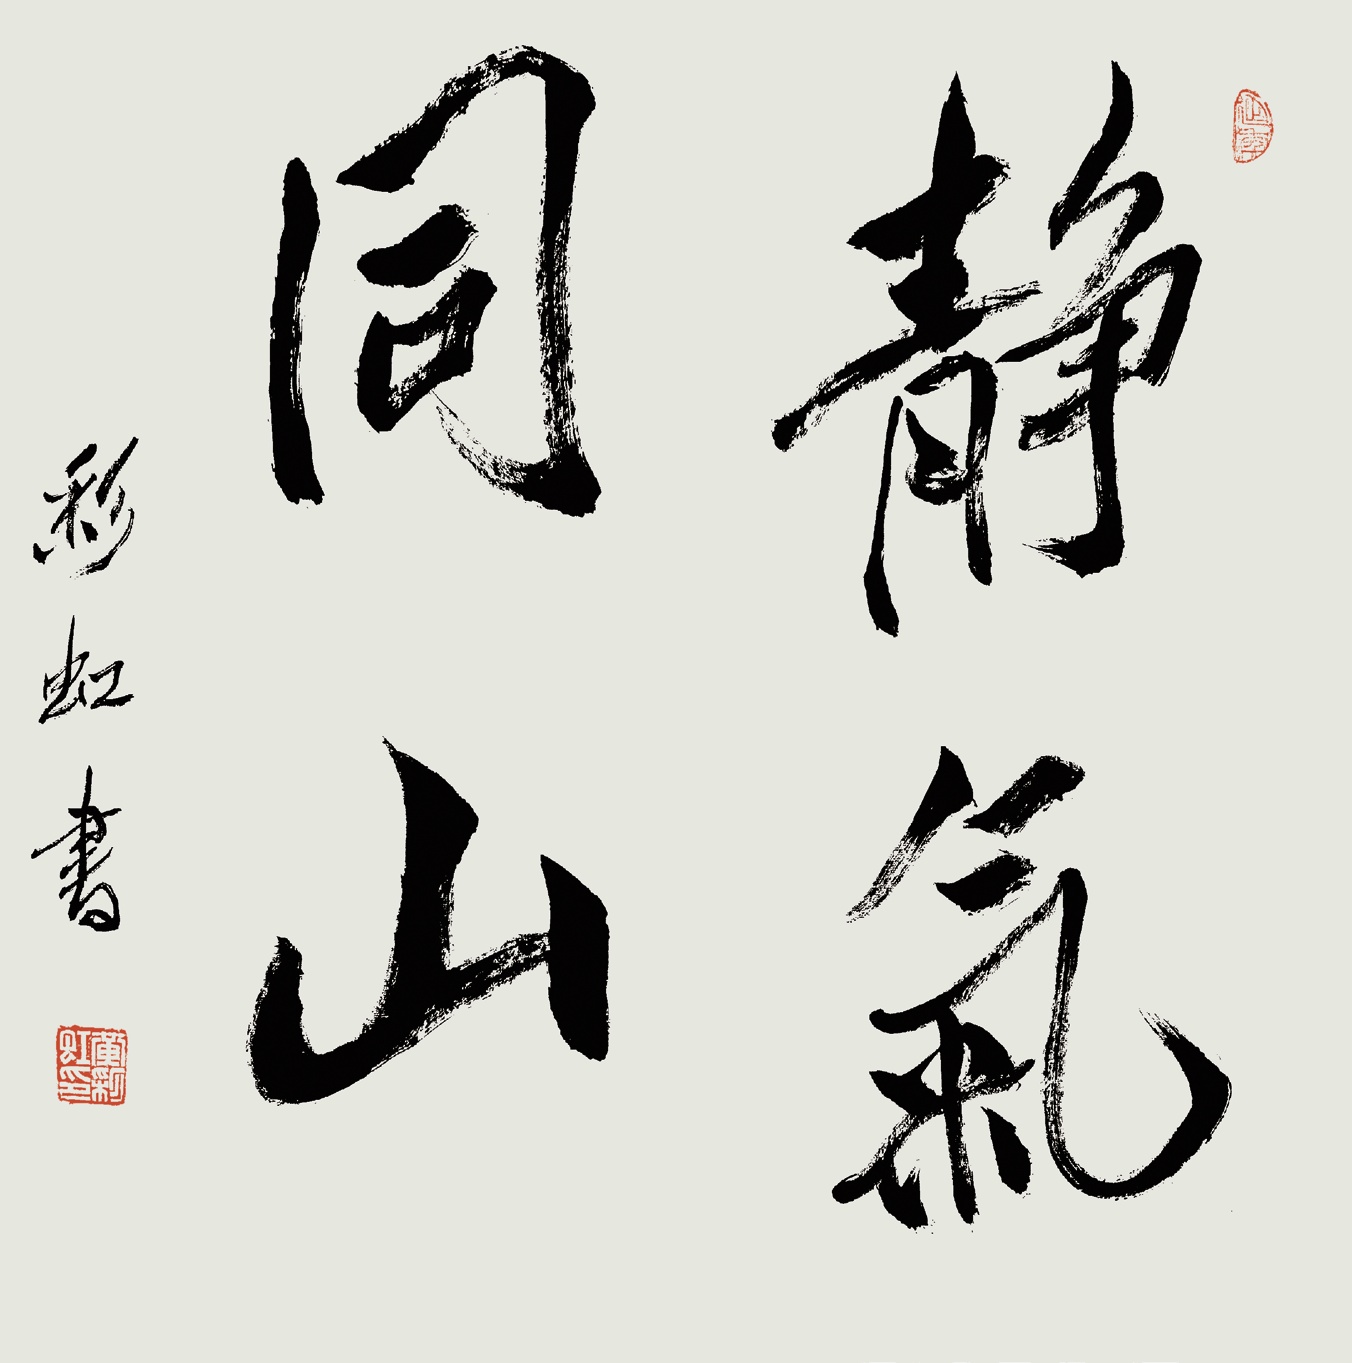 静氣
同山
彩虹書